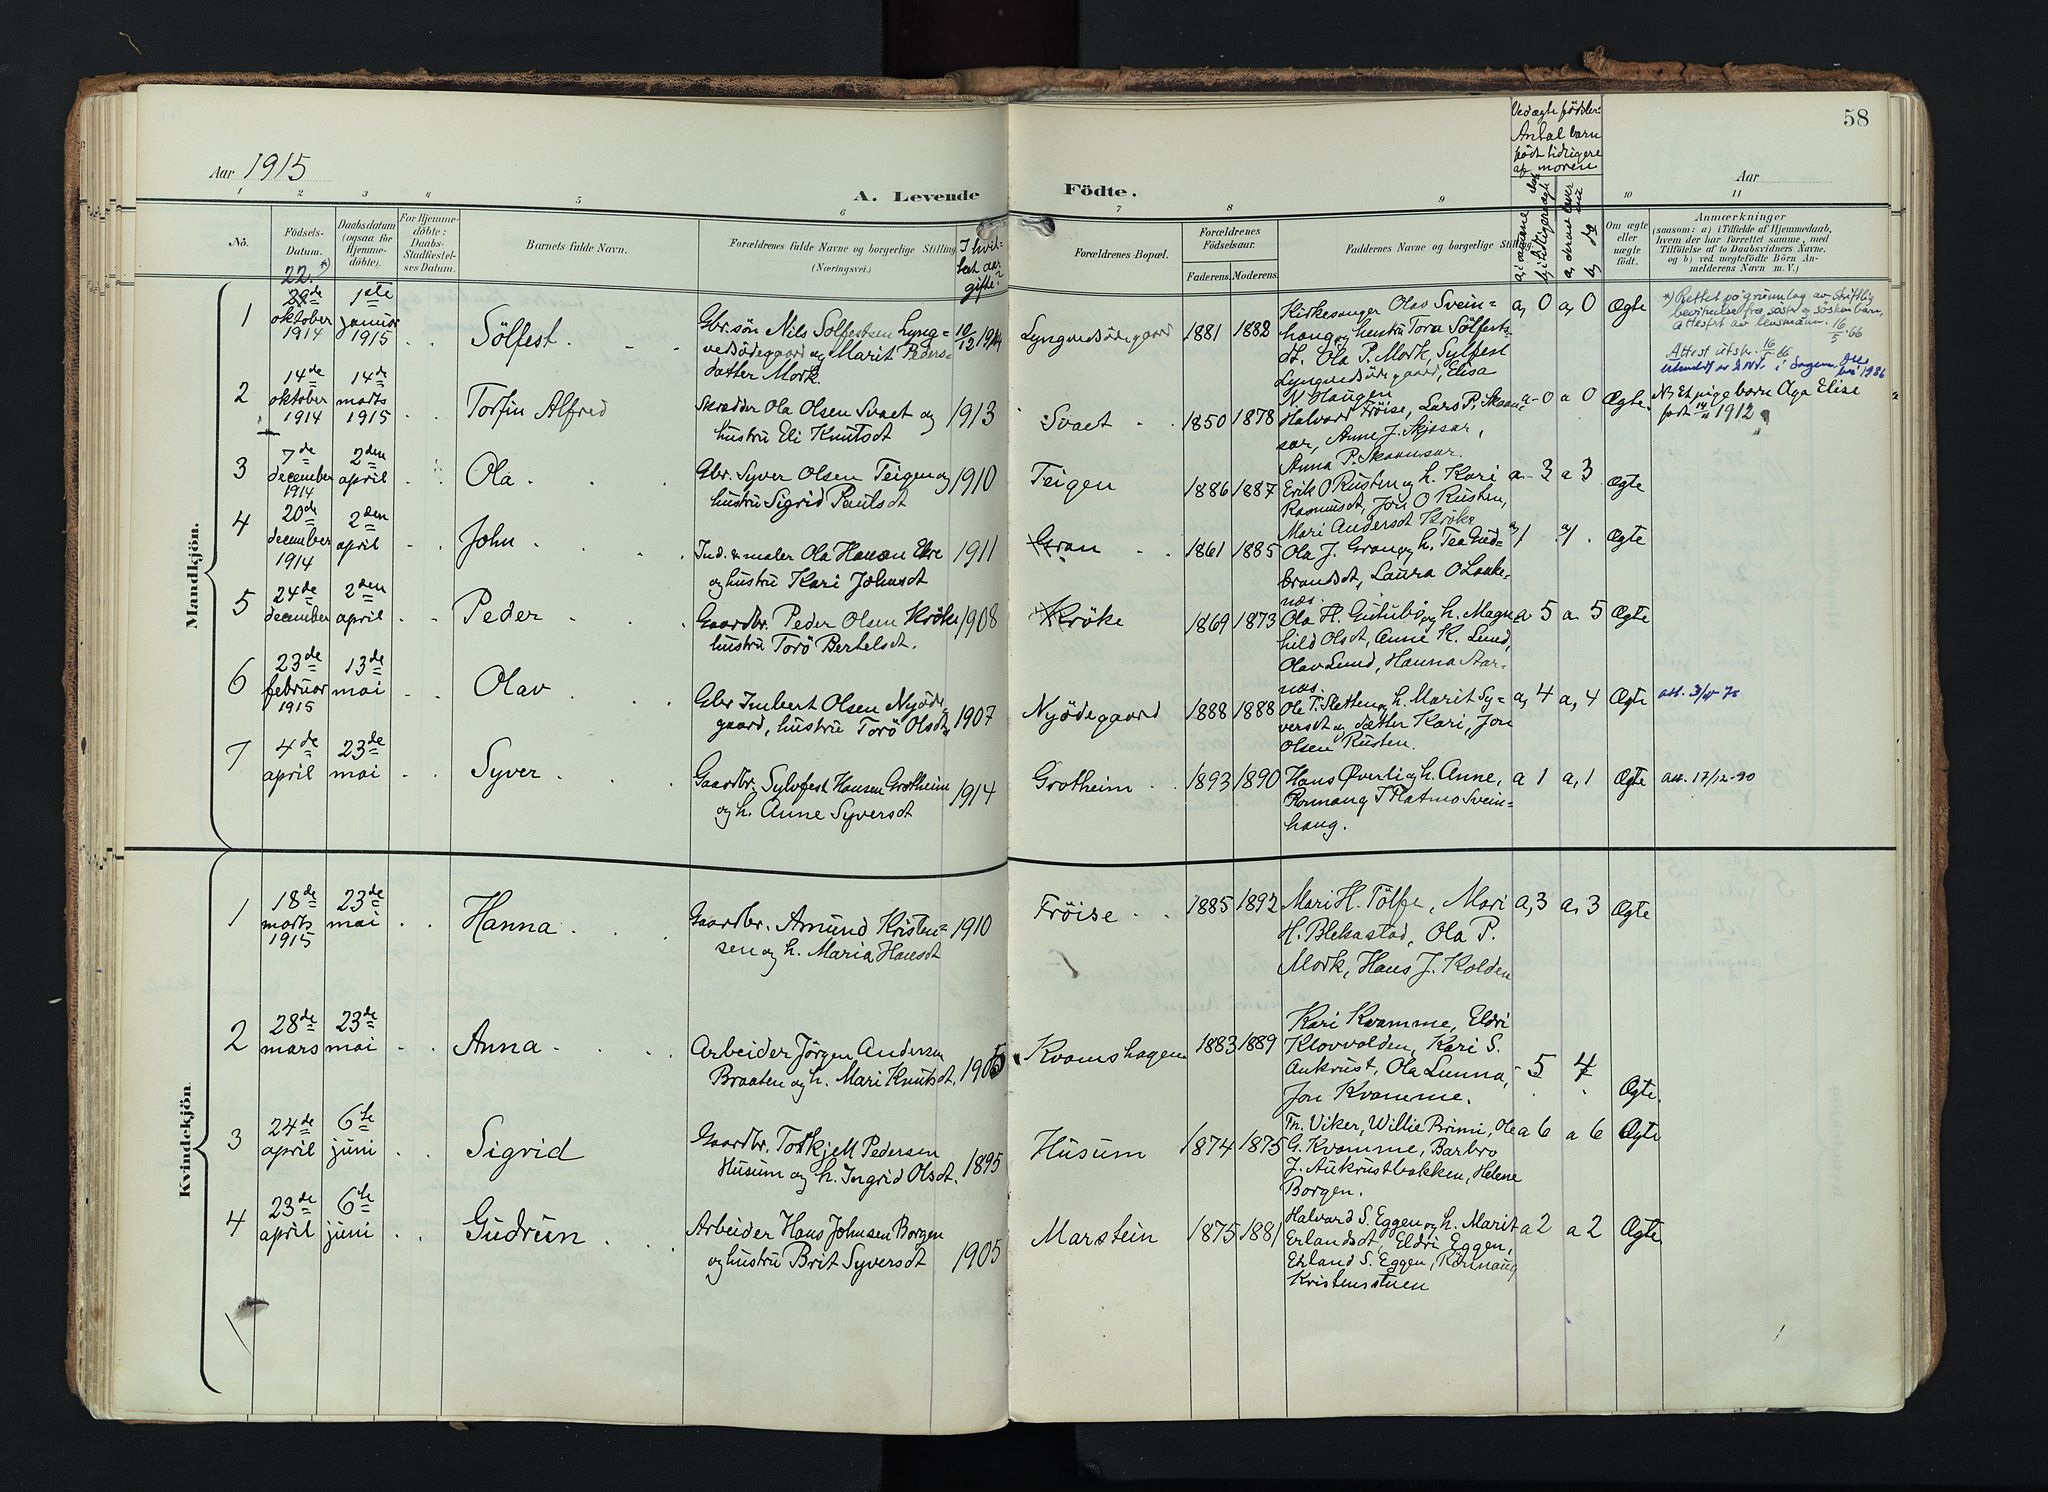 58
Aar 1915
Aar
A. Levende Födte.
Ved ægte födsler:
Antal barn
födt tidligere
af moren
1 2 3 4 5 6 7 8 9 10 11
No.
Födsels-
Datum.
Daabsdatum
(ogsaa for
Hjemme-
döbte).
For Hjemme-
döbte:
Daabs-
Stadfæstel-
ses Datum.
Barnets fulde Navn.
Forældrenes fulde Navne og borgerlige Stilling
(Næringsvei.)
I hvil-
ket aar
gifte?
Forældrenes Bopæl.
Forældrenes
Födselsaar.
Faderens. Moderens.
Faddernes Navne og borgerlige Stilling.
Om ægte
eller
uægte
födt.
Anmærkninger
(saasom: a) i Tilfælde af Hjemmedaab,
hvem der har forrettet samme, med
Tilföielse af to Daabsvidners Navne.
og b) ved uægtefödte Börn An-
melderens Navn m. V.)
Mandkjön.
1
22. *)
28de
oktober
1914
1ste
januar
1915
Sölfest.
Gbr.sön Nils Solfestsen Lyng-
vedsödegaard og Marit Peders-
datter Mork.
10/12 1914
Lyngvedsödegaard
1881 1882
Kirkesanger Olav Svein-
haug og hustru Tora Sölfests-
dt. Ola P. Mork, Sylfest
Lyngvedsödegaard, Elisa
N Haugen
a, 0 a, 0 Ægte
*) Rettet på grunnlag av skriftlig
bevitnelse fra söster og söskenbarn,
attestert av lensmann. 16/5 66
Attest utskr. 16/5 66
2
14de
oktober
1914
14de
marts
1915
Torfin Alfred
Skrædder Ola Olsen Svaet og
hustru Eli Knutsdt
1913
Svaet
1850 1878
Halvard Fröise, Lars P. Skaan-
sar, Anne J. Skjasar,
Anna P. Skaansar.
a-0 a 0 Ægte.
Et pigebarn Aga Elise
födt 1912
3
7de
december
1914
2den
april
Ola
Gbr. Syver Olsen Teigen og
hustru Sigrid Paulsdt
1910
Teigen
1886 1887
Erik O Rusten og h. Kari
Rasmusdt, Jon O Rusten,
Mari Andersdt Kröke
a-3 a 3 Ægte
4
20de
december
1914
2den
april
John
Ind. & maler Ola Hansen Ekre
og hustru Kari Johnsdt
1911
Gran
1861 1885
Ola J. Gran og h. Tea Gud-
brandsdt, Laura O Laake-
næs.
a 1 a 1 Ægte
5
24de
december
2den
april
Peder
Gaardbr. Peder Olsen Kröke
hustru Torö Bertelsdt.
1908
Kröke
1869 1873
Ola H. Gutubö og h. Magn-
hild Olsdt, Anne K. Lund,
Olav Lund, Hanna Aar-
næs.
a 5 a 5 Ægte
6
23de
februar
1915
13de
mai
Olav
Gbr Imbert Olsen Nyöde-
gaard, hustru Torö Olsdt
1907
Nyödegaard
1888 1888
Ole T. Sletten og h. Marit Sy-
versdt og datter Kari, Jon
Olsen Rusten.
a, 4 a, 4 Ægte
7
4de
april
23de
mai
Syver
Gaardbr. Sylvfest Hansen Grotheim
og h. Anne Syversdt
1914
Grotheim
1893 1890
Hans Øverli og h. Anne,
Ronnaug T Platmo Svein-
haug.
a 1 a, 1 Ægte
att. 17/12-90
Kvindekjön
1
18de
marts
1915
23de
mai
Hanna
Gaardbr. Amund Kristen-
sen og h. Maria Hansdt
1910
Fröise
1885 1892
Mari H. Tölfe, Mari
H. Blekastad, Ola P.
Mork, Hans J. Kolden
a, 3 a, 3 Ægte
2
28de
mars
23de
mai
Anna
Arbeider Jörgen Andersen
Braaten og h. Mari Knutsdt.
1905
Kvamshagen
1883 1889
Kari Kvamme, Eldri
Klovvolden, Kari S.
Aukrust, Ola Lunna,
Jon Kvamme.
5 4 Ægte.
3
24de
april
6te
juni
Sigrid
Gaardbr. Torkjell Pedersen
Husum og h. Ingrid Olsdt.
1895
Husum
1874 1875
Fr. Viker, Willie Brimi, Ole
G. Kvamme, Barbro
J. Aukrustbakken, Helene
Borgen.
a 6 a 6 Ægte
4
23de
april
6te
juni
Gudrun
Arbeider Hans Johnsen Borgen
og hustru Brit Syversdt
1905
Marstein
1875 1881
Halvard S. Eggen og h. Marit
Erlandsdt, Eldri Eggen,
Erland S. Eggen, Rönnaug
Kristenstuen
a 2 a 2 Ægte